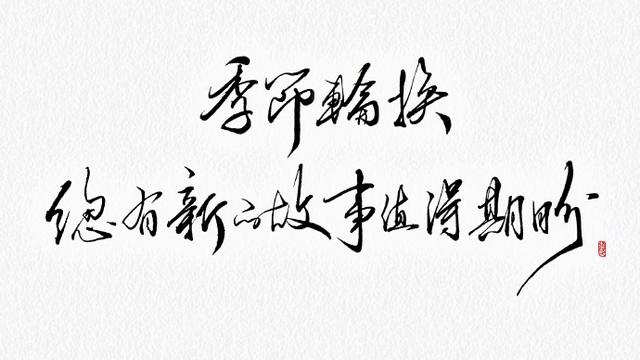 季節輪换
總有新的故事值得期盼